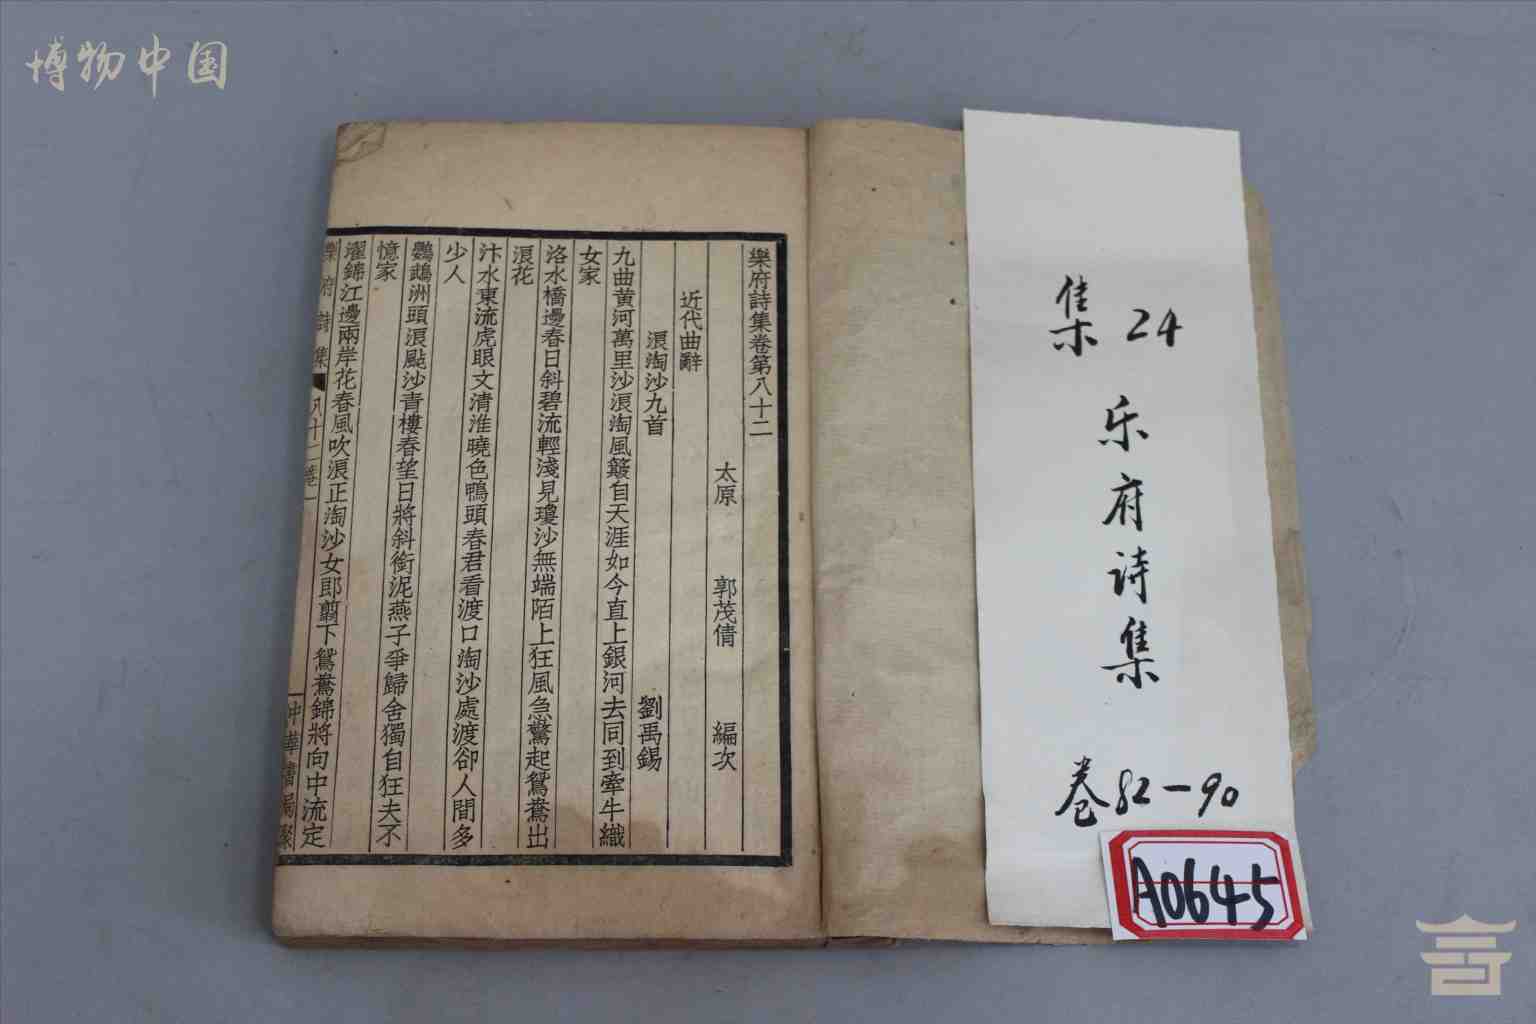 博物中国
樂府詩集卷第八十二
太原 郭茂倩 編次
近代曲辭
浪淘沙九首 劉禹錫
九曲黄河萬里沙浪淘風簸自天涯如今直上銀河去同到牽牛織
女家
洛水橋邊春日斜碧流輕淺見瓊沙無端陌上狂風急驚起鴛鴦出
浪花
汴水東流虎眼文清淮曉色鴨頭春君看渡口淘沙處渡卻人間多
少人
鸚鵡洲頭浪颭沙青樓春望日將斜銜泥燕子爭歸舍獨自狂夫不
憶家
濯錦江邊兩岸花春風吹浪正淘沙女郎翦下鴛鴦錦將向中流定
樂府詩集 八十二卷 一 中華書局聚
集24
乐府诗集
卷82-90
A0645